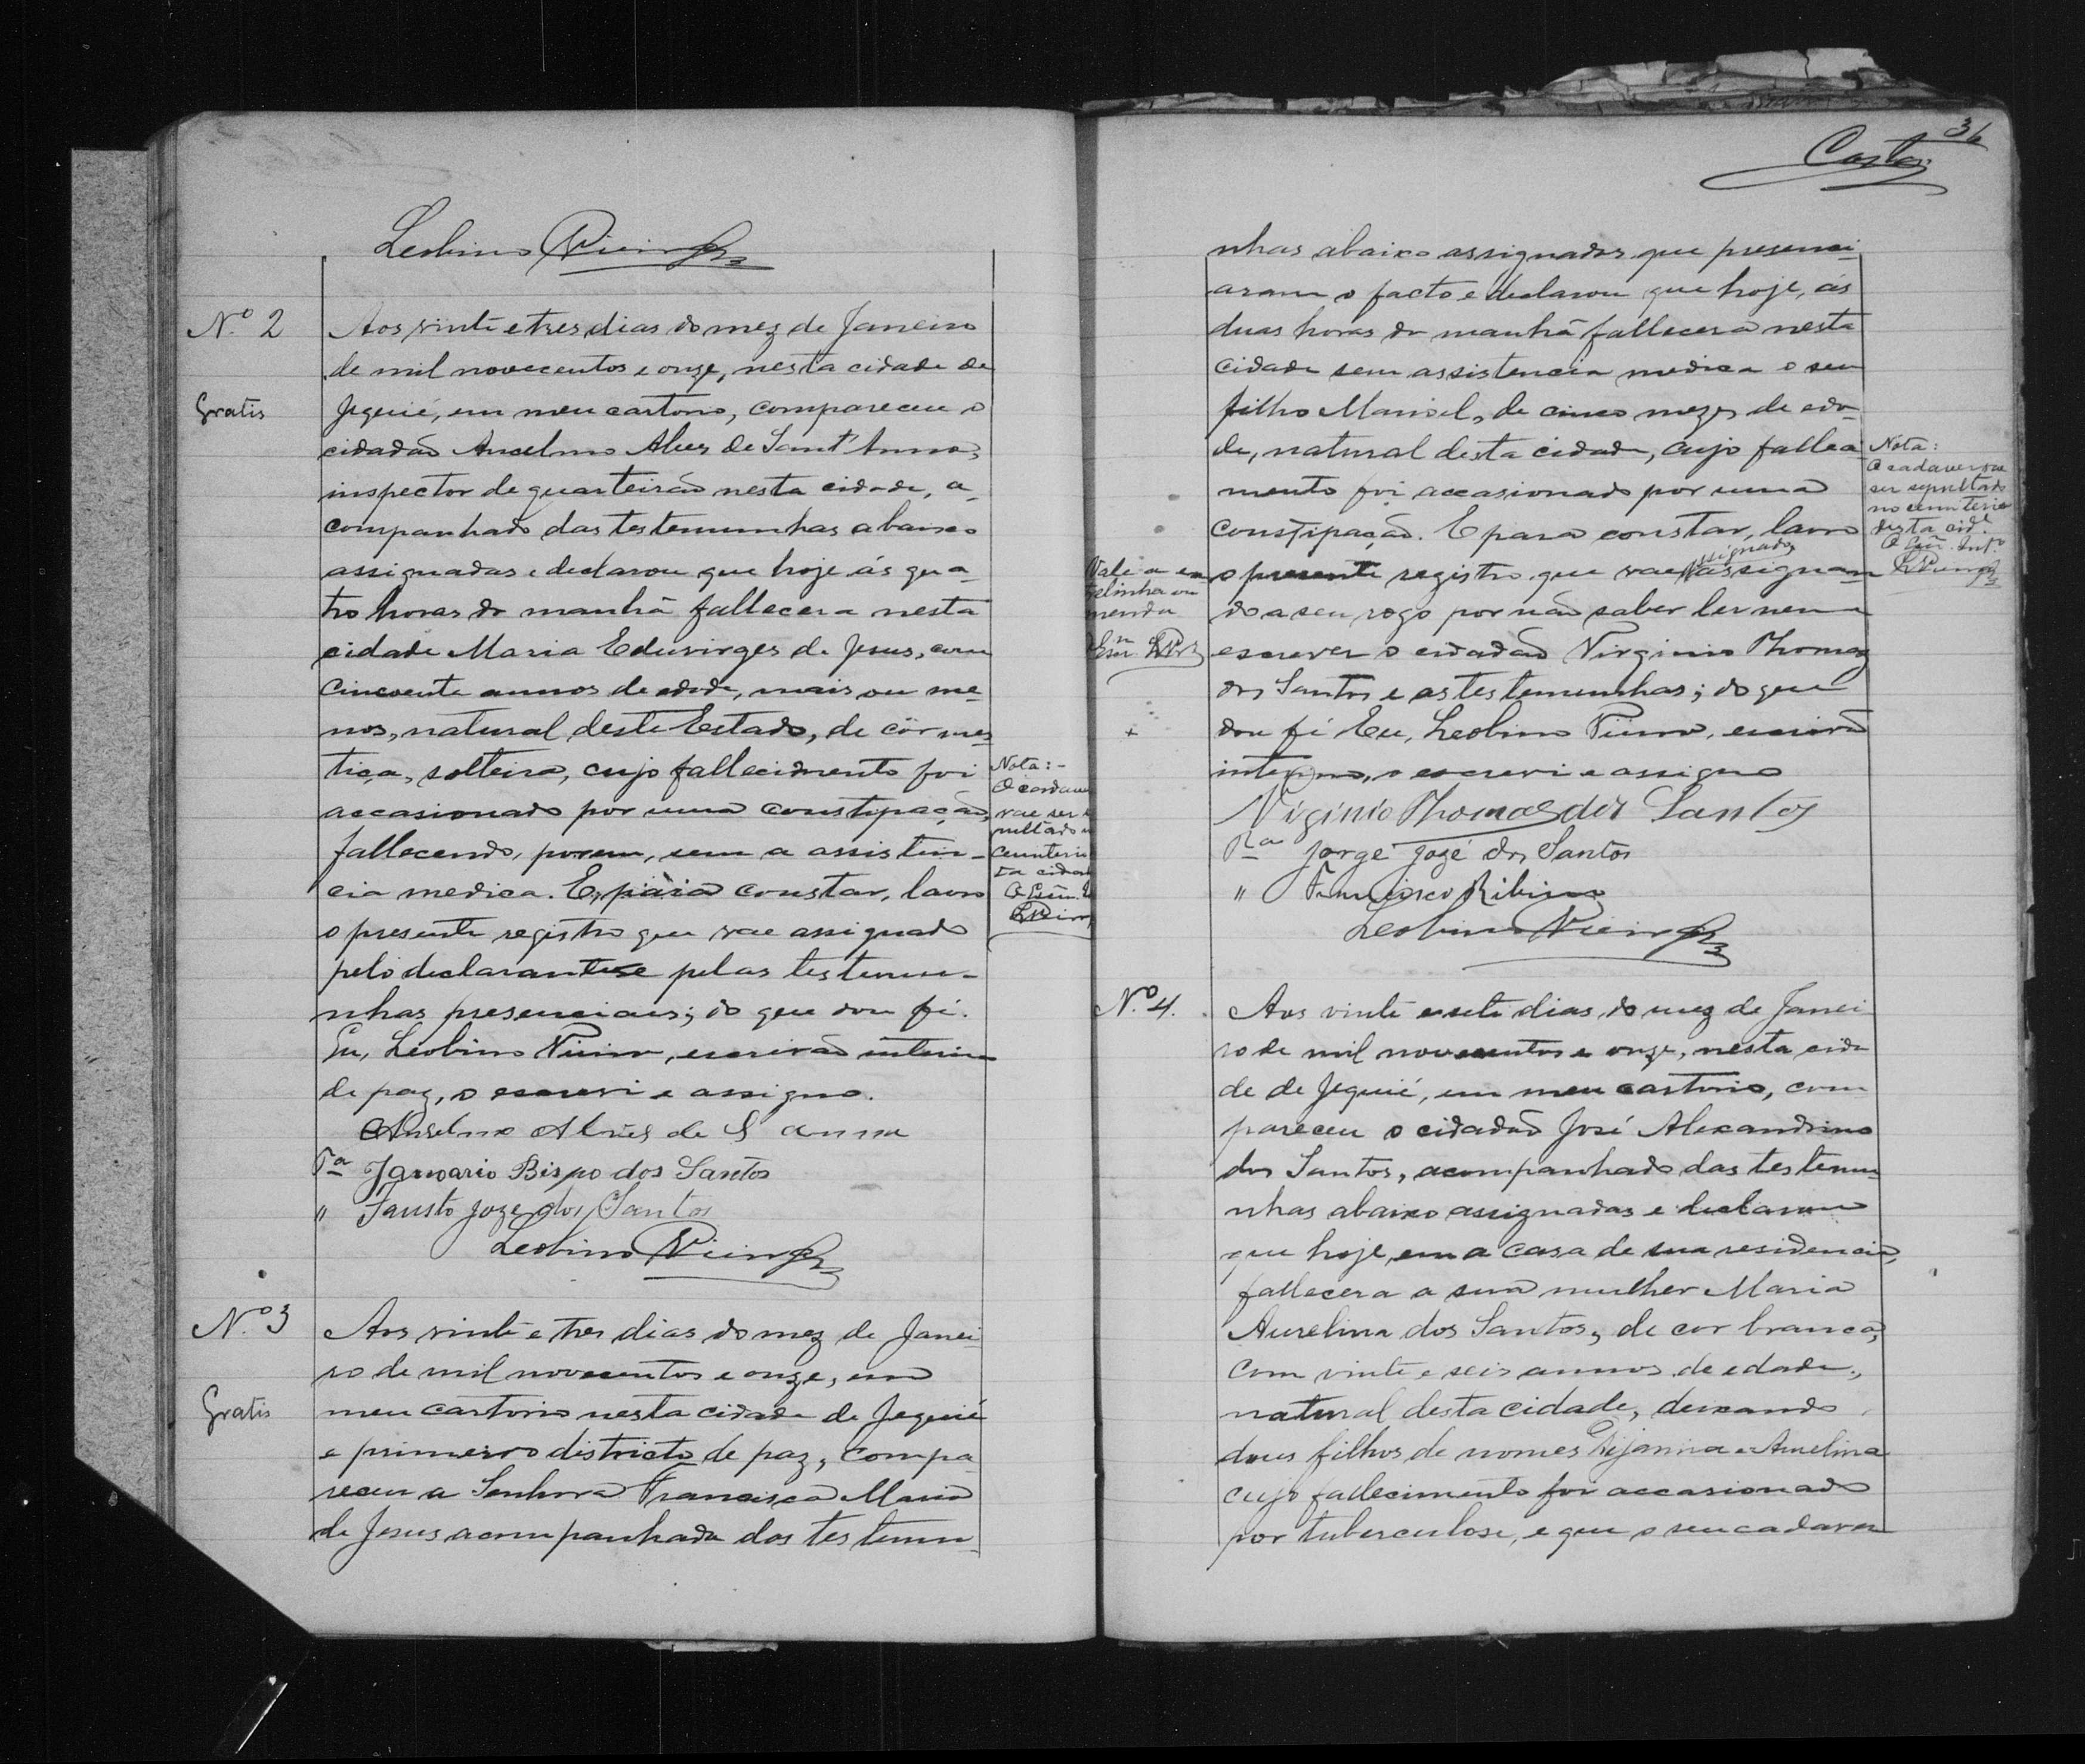 Leobino Vieira
Nº 2
Gratis
Aos vinte e tres dias do mez de Janeiro
de mil novecentos e onze, nesta cidade de
Jequié, em meu cartorio, compareceu o
cidadão Anselmo Alves de Sant'Anna,
inspector de quarteirão nesta cidade, a-
companhado das testemunhas abaixo
assignadas e declarou que hoje ás qua-
tro horas da manhã fallecera nesta
cidade Maria Eduvirges de Jesus, com
cincoenta annos de edade, mais ou me-
nos, natural deste Estado, de côr mes-
tiça, solteira, cujo fallecimento foi
occasionado por uma constipação,
fallecendo, porem, sem a assisten-
cia medica. E, para constar, lavro
o presente registro que vae assignado
pelo declarante e pelas testemu-
nhas presenciaes; do que dou fé.
Eu, Leobino Vieira, escrivão interino
de paz, o escrevi e assigno.
Anselmo Alves de S anna
Tª Januario Bispo dos Santos
" Fausto Joze dos Santos
Leobino Vieira
Nota:-
O cadaver
vae ser se
pultado n
cemiterio
ta cidade
O Escm. I
LVieira
Nº 3
Gratis
Aos vinte e tres dias do mez de Janei-
ro de mil novecentos e onze, em
meu cartorio nesta cidade de Jequié
e primeiro districto de paz, compa-
receu a Senhora Francisca Maria
de Jesus acompanhada das testemu-
36
Costa
nhas abaixo assignadas que presenci-
aram o facto e declarou que hoje, ás
duas horas da manhã fallecera nesta
cidade sem assistencia medica o seu
filho Manoel, de cinco mezes de eda-
de, natural desta cidade, cujo falleci-
mento foi occasionado por uma
constipação. E para constar, lavro
o presente registro que vae assignado assignan-
do a seu rogo por não saber ler nem
escrever o cidadão Virginio Thomaz
dos Santos e as testemunhas; do que
dou fé Eu, Leobino Vieira, escrivão
interino, o escrevi e assigno
Virginio Thomas dos Santos
Tª Jorge José dos Santos
" Francisco Ribeiro
Leobino Vieira
Vale a en
trelinha ou
menda
Nota:
O cadaver vae
ser sepultado
no cemiterio
desta cide
O Escm. Intº
LVieira
Nº 4.
Aos vinte e sete dias do mez de Janei
ro de mil novecentos e onze, nesta cida
de de Jequié, em meu cartorio, com
pareceu o cidadão José Alexandrino
dos Santos, acompanhado das testemu-
nhas abaixo assignadas e declarou
que hoje, em a casa de sua residencia,
fallecera a sua mulher Maria
Aurelina dos Santos, de cor branca,
com vinte e seis annos de edade,
natural desta cidade, deixando
dous filhos de nomes Dejanira e Aurelina
cujo fallecimento foi occasionado
por tuberculose, e que o seu cadaver